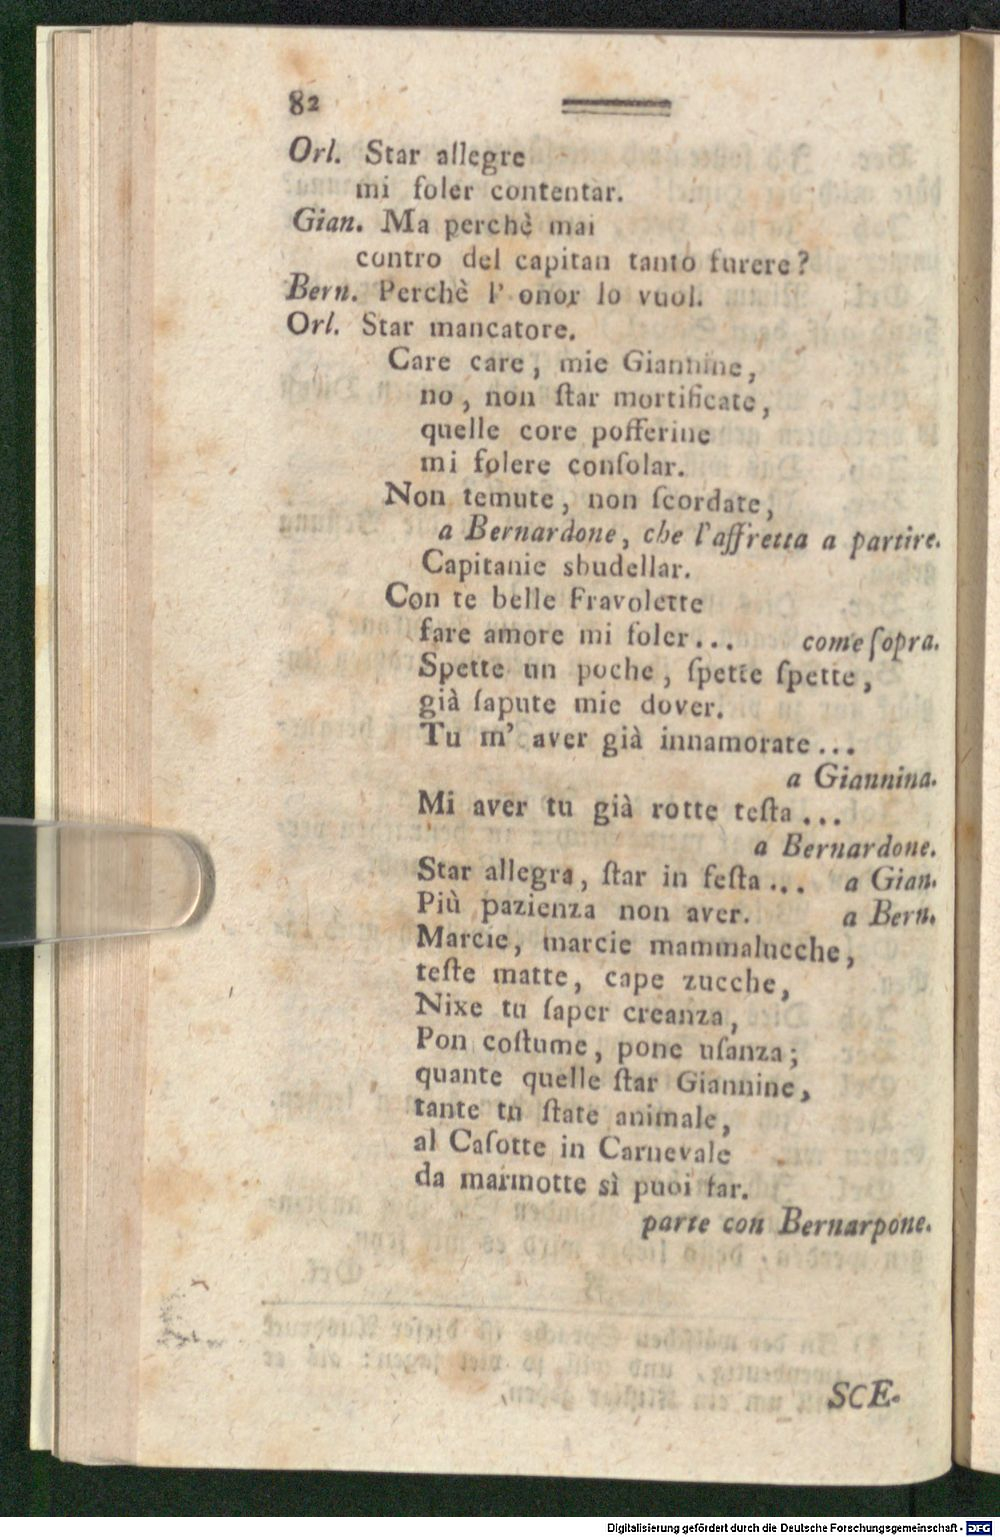 82
Orl. Star allegre
mi ſoler contentar.
Gian. Ma perchè mai
contro del capitan tanto furere?
Bern. Perchè l' onor lo vuol.
Orl. Star mancatore.
Care care, mie Giannine,
no, non ſtar mortificate,
quelle core poſferine
mi ſolere conſolar.
Non temute, non ſcordate,
a Bernardone, che l'affretta a partire.
Capitanie sbudellar.
Con te belle Fravolette
fare amore mi ſoler... come ſopra.
Spette un poche, ſpette ſpette,
già ſapute mie dover.
Tu m' aver già innamorate...
a Giannina.
Mi aver tu già rotte teſta...
a Bernardone.
Star allegra, ſtar in feſta... a Gian.
Più pazienza non aver. a Bern.
Marcie, marcie mammalucche,
teſte matte, cape zucche,
Nixe tu ſaper creanza,
Pon coſtume, pone uſanza;
quante quelle ſtar Giannine,
tante tu ſtate animale,
al Caſotte in Carnevale
da marmotte sì puoi far.
parte con Bernarpone.
SCE.
Digitalisierung gefördert durch die Deutsche Forschungsgemeinschaft - DFG